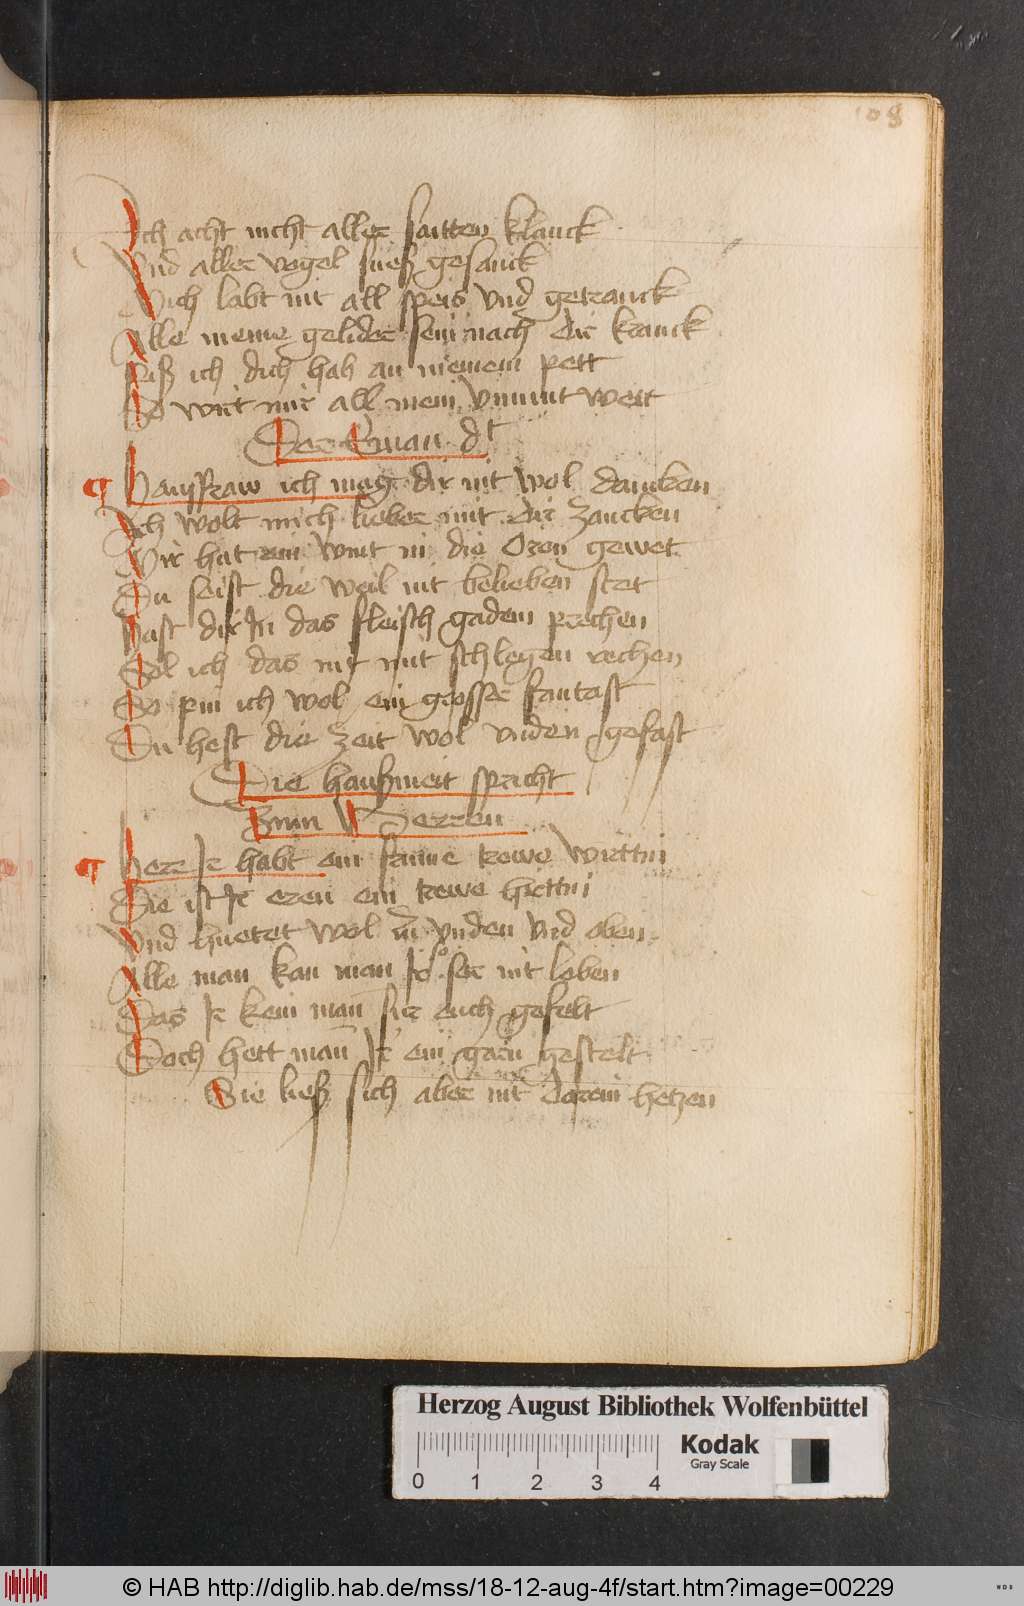 108
Ich acht nicht aller saitten klanck
Und aller vogel sueß gesanck
Mich labt nit all speis und getranck
Alle meine gelider sein nach dir kranck
piß ich dich hab an meinem pett
So wirt mir all mein unmut wett
Der Eman dt
Hausfraw ich mag dir nit wol dancken
Ich wolt mich lieber mit dir zancken
Mir hat ein wint in die oren gewet
Du seist die weil nit beliben stet
Hast dir In das fleisch gadem prechen
Sol ich das nit mit schlegen rechen
So pin ich wol ein grosser fantast
Du hest die zeit wol unden gefast
Die haußmeit spricht
Zum Herren
Herr Ir habt ein frume trewe wirttin
Die ist Ir eren ein trewe hirttin
Und huetet wol Ir unden und oben
Alle man kan man Ir so ser nit loben
Das Ir kein man für euch gefelt
Doch hett man Ir ein garn gestelt
Sie ließ sich aber nit darein hetzen
Herzog August Bibliothek Wolfenbüttel
Kodak
Gray Scale
0 1 2 3 4
© HAB http://diglib.hab.de/mss/18-12-aug-4f/start.htm?image=00229